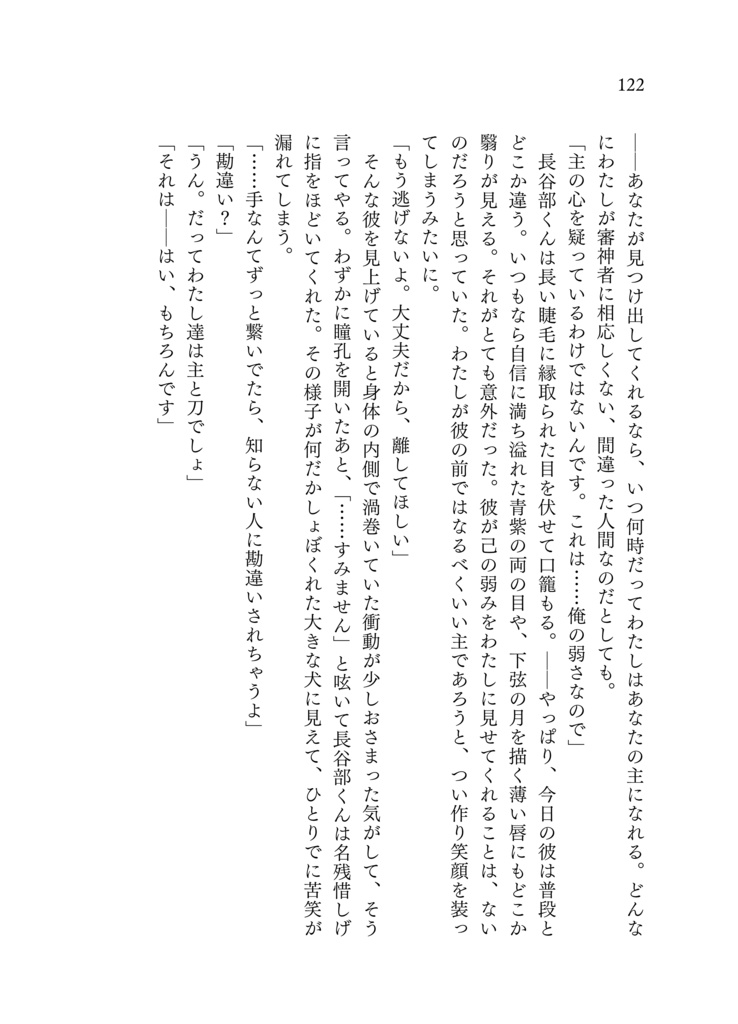 122
――あなたが見つけ出してくれるなら、いつ何時だってわたしはあなたの主になれる。どんな
にわたしが審神者に相応しくない、間違った人間なのだとしても。
「主の心を疑っているわけではないんです。これは……俺の弱さなので」
　長谷部くんは長い睫毛に縁取られた目を伏せて口籠もる。――やっぱり、今日の彼は普段と
どこか違う。いつもなら自信に満ち溢れた青紫の両の目や、下弦の月を描く薄い唇にもどこか
翳りが見える。それがとても意外だった。彼が己の弱みをわたしに見せてくれることは、ない
のだろうと思っていた。わたしが彼の前ではなるべくいい主であろうと、つい作り笑顔を装っ
てしまうみたいに。
「もう逃げないよ。大丈夫だから、離してほしい」
　そんな彼を見上げていると身体の内側で渦巻いていた衝動が少しおさまった気がして、そう
言ってやる。わずかに瞳孔を開いたあと、「……すみません」と呟いて長谷部くんは名残惜しげ
に指をほどいてくれた。その様子が何だかしょぼくれた大きな犬に見えて、ひとりでに苦笑が
漏れてしまう。
「……手なんてずっと繋いでたら、知らない人に勘違いされちゃうよ」
「勘違い？」
「うん。だってわたし達は主と刀でしょ」
「それは――はい、もちろんです」